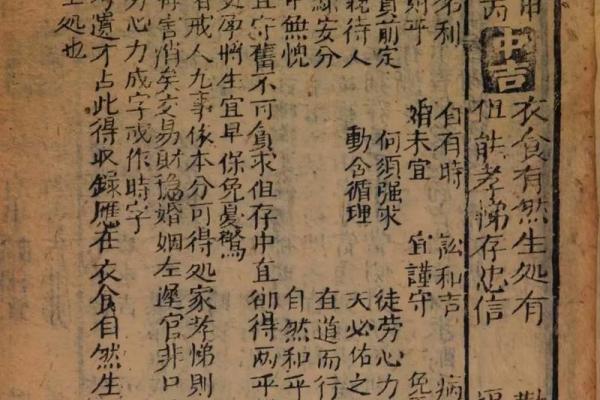 衣食有然生処有
中吉
但能孝悌存忠信
名利 自有時 訟和吉 病
婚未宜 宜謹守 免
貴前定 何須强求 徒劳心力
待人 動合循理 天必佑之
安分 直道而行
中無愧 自然和平
宜守舊不可貪求但存中直卻得两平
孕將生宜早保免憂驚
者戒人九事係本分可得処家孝悌則
害消矣交易財穩婚姻左遲官非口
心力成字或作時字
遺才占此得収録應在衣食自然生
生処也